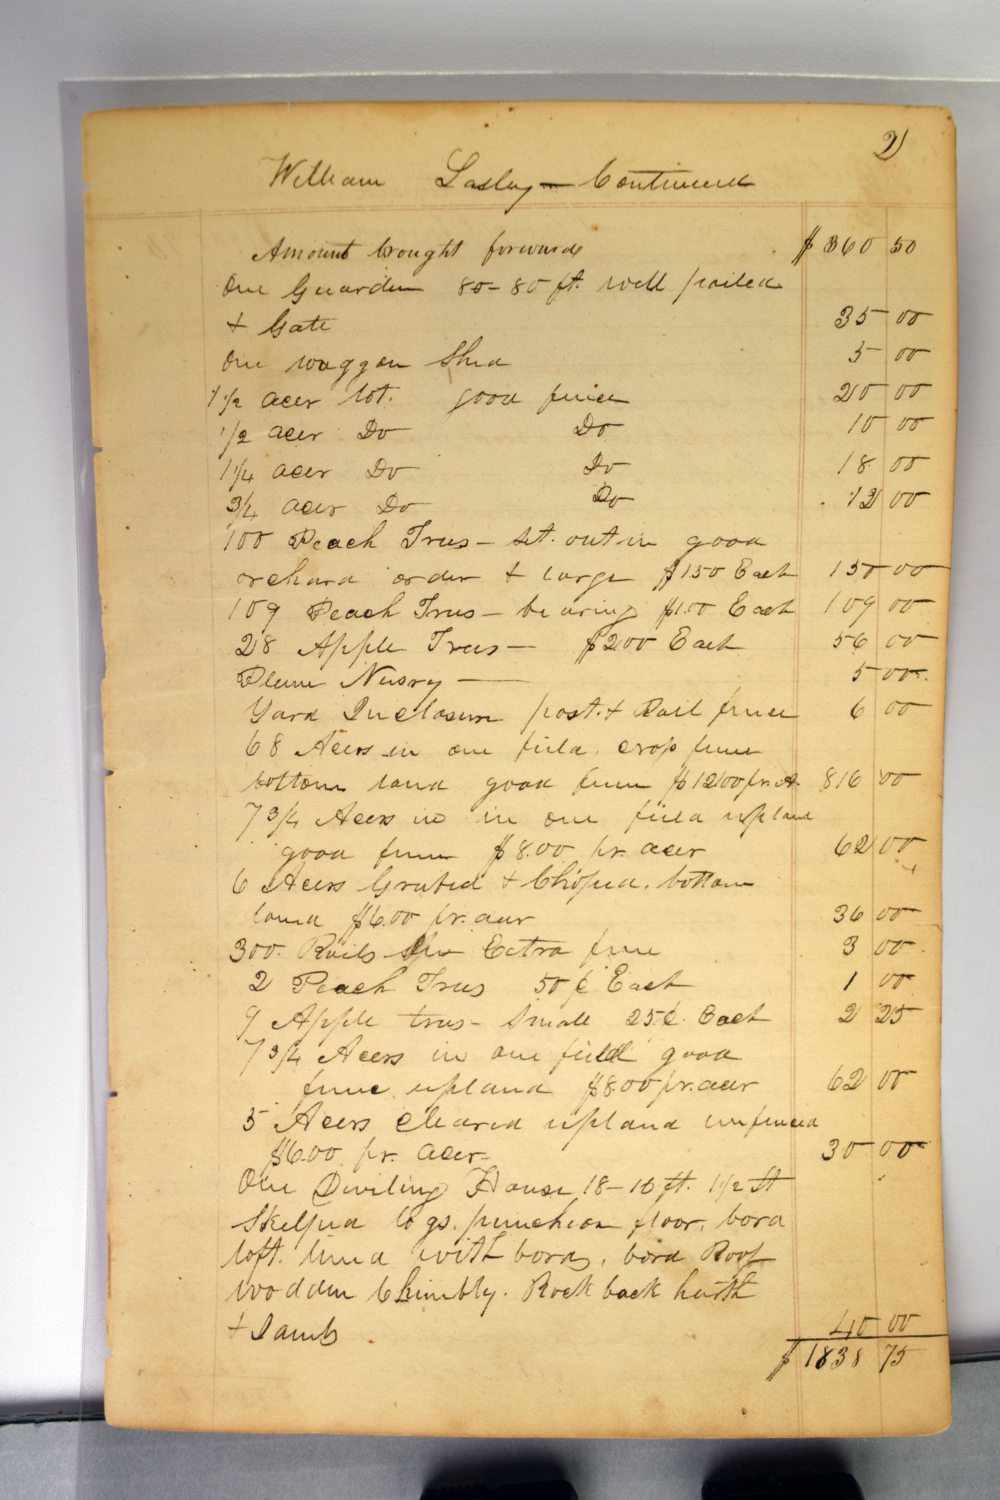 2)
William Lasley — Continued
Amount brought forward $ 360 50
One Guarden 80-80 ft. well pailed
+ Gate 35 00
One waggon Shed 5 00
1 1/2 acer lot. good fence 20 00
1/2 acer Do Do 10 00
1 1/4 acer Do Do 18 00
3/4 acer Do Do 12 00
100 Peach Trees - set out in good
orchard order + large $1 50 Each 150 00
109 Peach Trees - bearing $1.00 Each 109 00
28 Apple Trees — $2.00 Each 56 00
Plum Nusry — 5 00
Yard Inclosure post. + Rail fence 6 00
68 Acers in one field crop fence
bottom land good fence $12.00 pr. A. 816 00
7 3/4 Acers in in one field upland
good fence $8.00 pr. acer 62 00
6 Acers Grubed + Choped. bottom
land $6.00 pr. acer 36 00
300. Rails Extra fence 3 00
2 Peach Trees 50 ¢ Each 1 00
9 Apple trees - Small 25 ¢ Each 2 25
7 3/4 Acers in one field good
fence upland $8.00 pr. acer 62 00
5 Acers cleared upland unfenced
$6.00 pr. acer. 30 00
One Dwiling House 18-16 ft. 1 1/2 St
Skelped logs. puncheon floor, bord
loft. lined with bords, bord Roof
wooden Chimbly. Rock back harth
+ Jambs 40 00
$ 1838 75